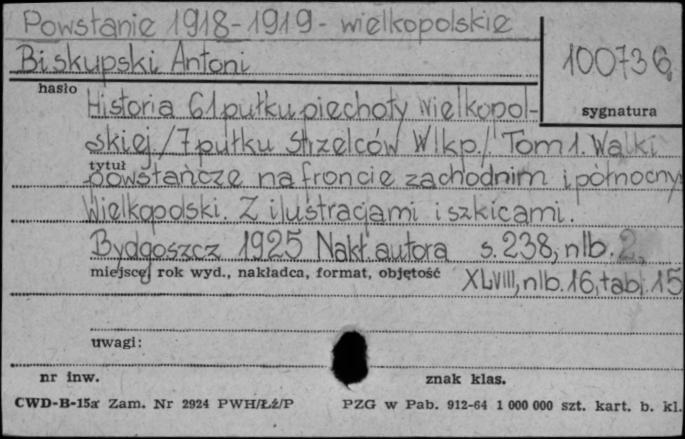 Powstanie 1918-1919- wielkopolskie
Biskupski Antoni
100736
hasło
sygnatura
Historia 61 pułku piechoty Wielkopol-
skiej /7 pułku Strzelców Wlkp./ Tom 1. Walki
tytuł
powstańcze na froncie zachodnim i północnym
Wielkopolski. Z ilustracjami i szkicami.
Bydgoszcz 1925 Nakł. autora s. 238, nlb. 2,
miejsce, rok wyd., nakładca, format, objętość
XLVIII, nlb. 16, tabl. 15
uwagi:
nr inw.
znak klas.
CWD-B-15a Zam. Nr 2924 PWH/Łź/P
PZG w Pab. 912-64 1 000 000 szt. kart. b. kl.